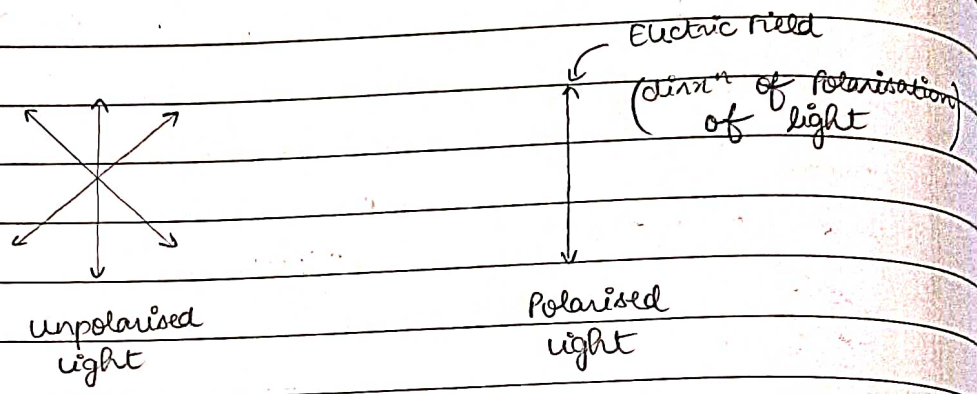 Electric Field
(dirxⁿ of Polarisation
of light)
unpolarised
light
Polarised
light